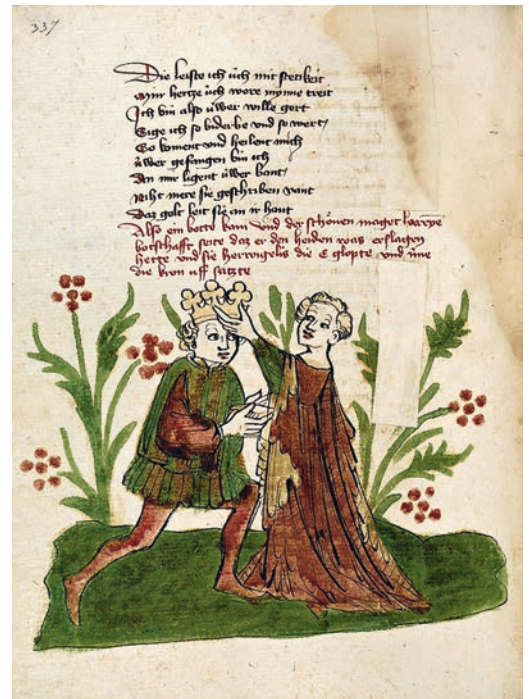 337
Die leiste ich üch mit stetikeit
Myn hertze üch wore mynne treit
Ich bin also üwer wille gert
Sige ich so biderbe und so wert /
So koment und heilent mich
üwer gefangen bin ich
An mir ligent üwer bant /
Niht mere sie geschriben vant
Daz golt leit sie an ir hant
Also ein botte kam und der schönen maget
botschafft seite daz er den heiden roas erslagen
hette und sie die e glopte und ime
die kron uff satzte